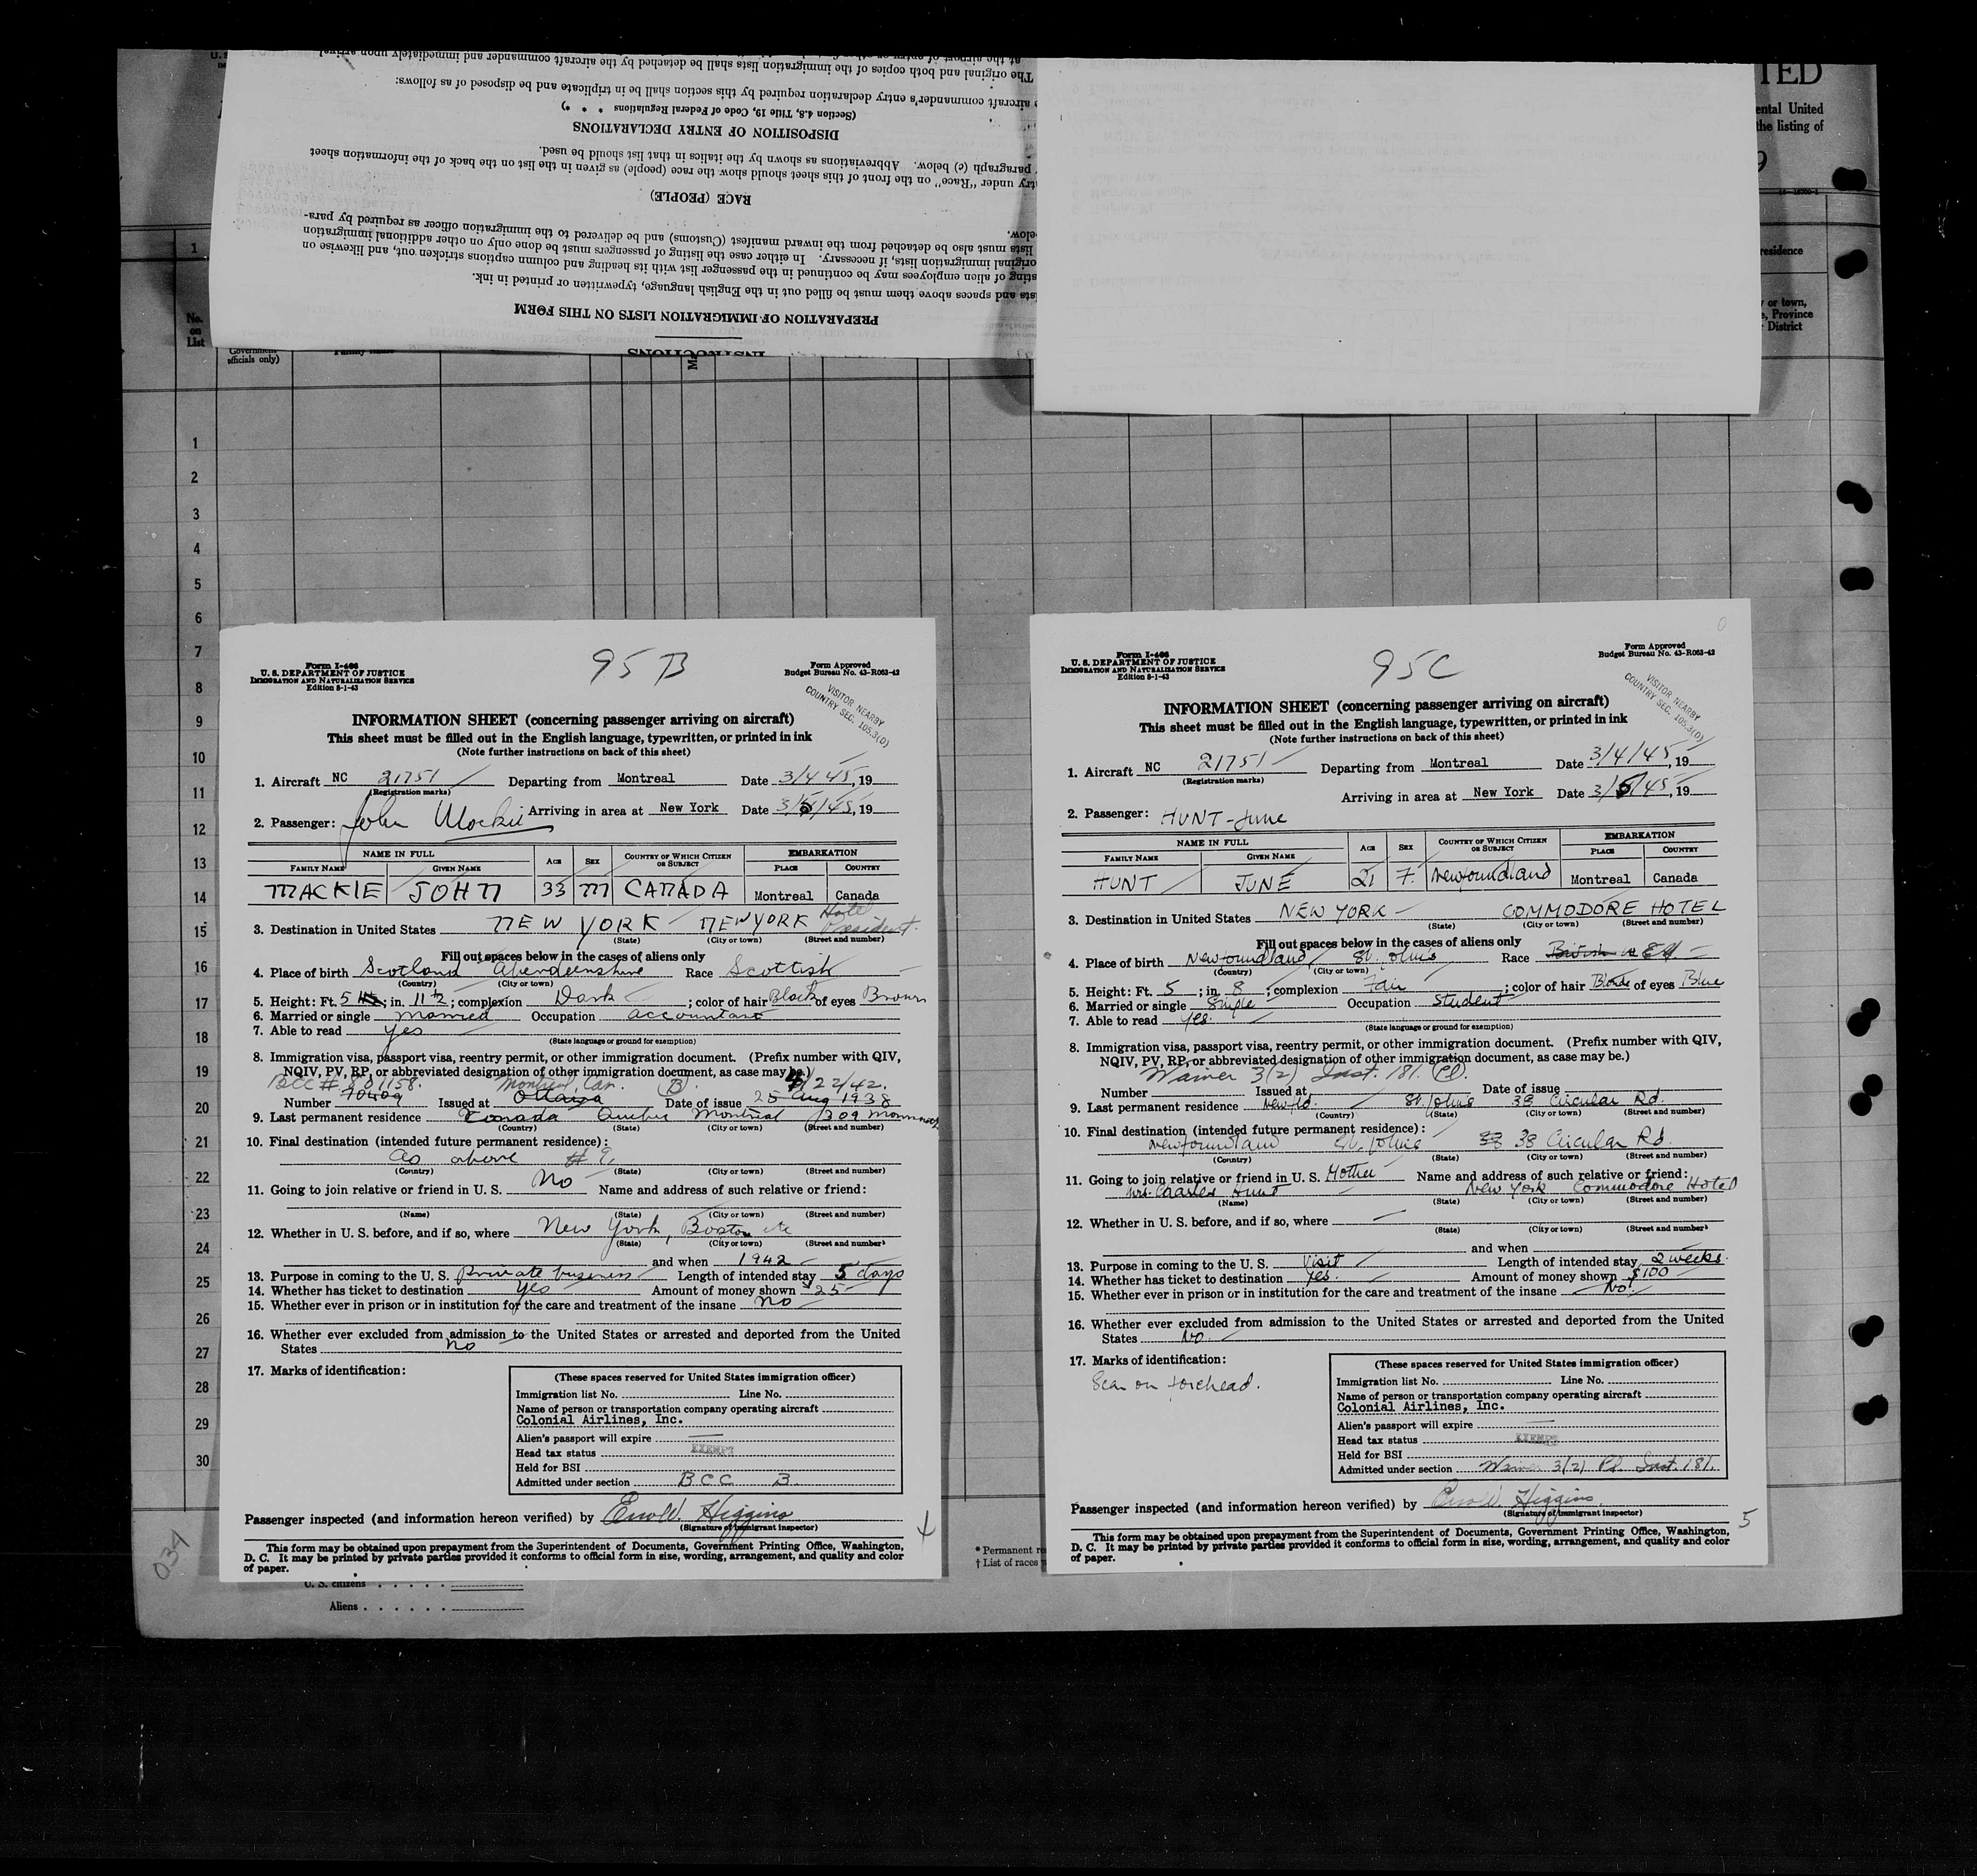 at the airport of entry
lists shall be detached by the aircraft commander and immediately upon arrival
The original and both copies of the immigration lists shall be detached by the aircraft commander and immediately upon arrival
aircraft commander's entry declaration required by this section shall be in triplicate and be disposed of as follows:
(Section 4.8, Title 19, Code of Federal Regulations * * *)
DISPOSITION OF ENTRY DECLARATIONS
paragraph (c) below. Abbreviations as shown by the italics in that list should be used.
try under "Race" on the front of this sheet should show the race (people) as given in the list on the back of the information sheet
RACE (PEOPLE)
below.
lists must also be detached from the inward manifest (Customs) and be delivered to the immigration officer as required by para-
original immigration lists, if necessary. In either case the listing of passengers must be done only on other additional immigration
sting of alien employees may be continued in the passenger list with its heading and column captions stricken out, and likewise on
ists and spaces above them must be filled out in the English language, typewritten or printed in ink.
PREPARATION OF IMMIGRATION LISTS ON THIS FORM
INSTRUCTIONS
TED
ental United
the listing of
9
residence
or town,
Province
District
1
No.
on
List
Government
officials only)
Family name
Ma
1
2
3
4
5
6
7
8
9
10
11
12
13
14
15
16
17
18
19
20
21
22
23
24
25
26
27
28
29
30
Form I-466
U. S. DEPARTMENT OF JUSTICE
IMMIGRATION AND NATURALIZATION SERVICE
Edition 8-1-43
95 B
Form Approved
Budget Bureau No. 43-R063-42
VISITOR NEARBY
COUNTRY SEC. 105.3(D)
INFORMATION SHEET (concerning passenger arriving on aircraft)
This sheet must be filled out in the English language, typewritten, or printed in ink
(Note further instructions on back of this sheet)
1. Aircraft NC 21751 Departing from Montreal Date 3/4 45, 19
(Registration marks)
Arriving in area at New York Date 3/5/45, 19
2. Passenger: John Mackie
NAME IN FULL AGE SEX COUNTRY OF WHICH CITIZEN OR SUBJECT EMBARKATION
FAMILY NAME GIVEN NAME PLACE COUNTRY
MACKIE JOHN 33 M CANADA Montreal Canada
3. Destination in United States NEW YORK NEW YORK Hotel President
(State) (City or town) (Street and number)
Fill out spaces below in the cases of aliens only
4. Place of birth Scotland Aberdeenshire Race Scottish
(Country) (City or town)
5. Height: Ft. 5; in. 11 1/2; complexion Dark; color of hair Black of eyes Brown
6. Married or single Married Occupation accountant
7. Able to read Yes
(State language or ground for exemption)
8. Immigration visa, passport visa, reentry permit, or other immigration document. (Prefix number with QIV,
NQIV, PV, RP, or abbreviated designation of other immigration document, as case may be.)
BCC # 801158. Montreal, Can. (B) 4/22/42.
Number 70409 Issued at Ottawa Date of issue 25 Aug 1938
9. Last permanent residence Canada Quebec Montreal 309
(Country) (State) (City or town) (Street and number)
10. Final destination (intended future permanent residence):
As above # 9.
(Country) (State) (City or town) (Street and number)
11. Going to join relative or friend in U. S. No Name and address of such relative or friend:
(Name) (State) (City or town) (Street and number)
12. Whether in U. S. before, and if so, where New York, Boston etc
(State) (City or town) (Street and number)
and when 1942
13. Purpose in coming to the U. S. private business Length of intended stay 5 days
14. Whether has ticket to destination Yes Amount of money shown $25
15. Whether ever in prison or in institution for the care and treatment of the insane no
16. Whether ever excluded from admission to the United States or arrested and deported from the United
States no
17. Marks of identification:
(These spaces reserved for United States immigration officer)
Immigration list No. Line No.
Name of person or transportation company operating aircraft
Colonial Airlines, Inc.
Alien's passport will expire —
Head tax status EXEMPT
Held for BSI
Admitted under section BCC B.
Passenger inspected (and information hereon verified) by Errol W. Higgins
(Signature of immigrant inspector)
4
This form may be obtained upon prepayment from the Superintendent of Documents, Government Printing Office, Washington,
D. C. It may be printed by private parties provided it conforms to official form in size, wording, arrangement, and quality and color
of paper.
Form I-466
U. S. DEPARTMENT OF JUSTICE
IMMIGRATION AND NATURALIZATION SERVICE
Edition 8-1-43
95C
Form Approved
Budget Bureau No. 43-R063-42
VISITOR NEARBY
COUNTRY SEC. 105.3(D)
INFORMATION SHEET (concerning passenger arriving on aircraft)
This sheet must be filled out in the English language, typewritten, or printed in ink
(Note further instructions on back of this sheet)
1. Aircraft NC 21751 Departing from Montreal Date 3/4/45, 19
(Registration marks)
Arriving in area at New York Date 3/5/45, 19
2. Passenger: HUNT - June
NAME IN FULL AGE SEX COUNTRY OF WHICH CITIZEN OR SUBJECT EMBARKATION
FAMILY NAME GIVEN NAME PLACE COUNTRY
HUNT JUNE 21 F. Newfoundland Montreal Canada
3. Destination in United States NEW YORK COMMODORE HOTEL
(State) (City or town) (Street and number)
Fill out spaces below in the cases of aliens only
4. Place of birth Newfoundland St. John's Race British
(Country) (City or town)
5. Height: Ft. 5; in. 8; complexion Fair; color of hair Blonde of eyes Blue
6. Married or single Single Occupation Student
7. Able to read yes.
(State language or ground for exemption)
8. Immigration visa, passport visa, reentry permit, or other immigration document. (Prefix number with QIV,
NQIV, PV, RP, or abbreviated designation of other immigration document, as case may be.)
Waiver 3(2) Inst. 181.
Number Issued at Date of issue
9. Last permanent residence Newfld. St. John's 38 Circular Rd.
(Country) (State) (City or town) (Street and number)
10. Final destination (intended future permanent residence):
Newfoundland St. John's 38 Circular Rd.
(Country) (State) (City or town) (Street and number)
11. Going to join relative or friend in U. S. Mother Name and address of such relative or friend:
Mrs. Charles Hunt New York Commodore Hotel
(Name) (State) (City or town) (Street and number)
12. Whether in U. S. before, and if so, where —
(State) (City or town) (Street and number)
and when —
13. Purpose in coming to the U. S. Visit Length of intended stay 2 weeks.
14. Whether has ticket to destination Yes. Amount of money shown $100
15. Whether ever in prison or in institution for the care and treatment of the insane No.
16. Whether ever excluded from admission to the United States or arrested and deported from the United
States No.
17. Marks of identification:
Scar on forehead.
(These spaces reserved for United States immigration officer)
Immigration list No. Line No.
Name of person or transportation company operating aircraft
Colonial Airlines, Inc.
Alien's passport will expire —
Head tax status EXEMPT
Held for BSI
Admitted under section Waiver 3(2) Inst. 181.
Passenger inspected (and information hereon verified) by Errol W. Higgins
(Signature of immigrant inspector)
5
This form may be obtained upon prepayment from the Superintendent of Documents, Government Printing Office, Washington,
D. C. It may be printed by private parties provided it conforms to official form in size, wording, arrangement, and quality and color
of paper.
* Permanent re
† List of races
034
U. S. citizens
Aliens